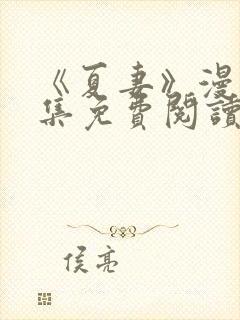 《夏妻》漫
集免費閱讀
侯亮